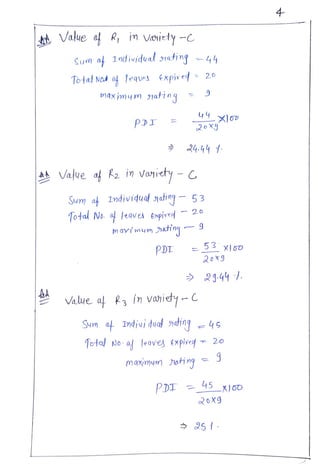 4
Value of R1 in variety - C
Sum of Individual rating - 44
Total No of leaves Expired = 20
maximum rating = 9
PDI = 44/20x9 x100
⇒ 24.44 %.
Value of R2 in variety - C
Sum of Individual rating - 53
Total No. of leaves Expired - 20
maximum rating - 9
PDI = 53/20x9 x100
⇒ 29.44 %.
Value of R3 in variety - C
Sum of Individual rating - 45
Total No. of leaves Expired - 20
maximum rating = 9
PDI = 45/20x9 x100
⇒ 25 %.